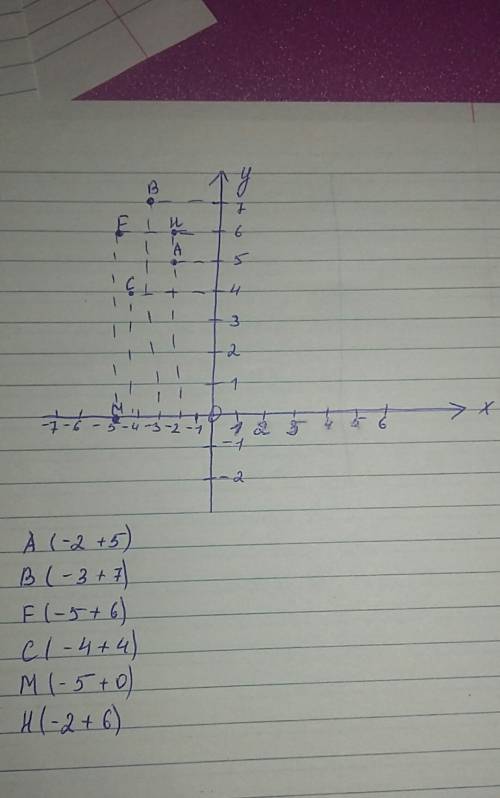 y
B
7
F
H
6
A
5
C
4
3
2
1
M
-7 -6 -5 -4 -3 -2 -1 0 1 2 3 4 5 6 x
-1
-2
A (-2 +5)
B (-3 +7)
F (-5 + 6)
C ( -4 +4)
M (-5 +0)
H (-2 +6)